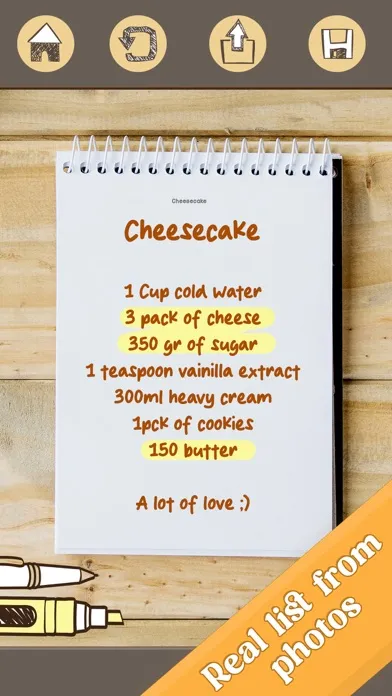 Cheesecake
Cheesecake
1 Cup cold water
3 pack of cheese
350 gr of sugar
1 teaspoon vainilla extract
300ml heavy cream
1pck of cookies
150 butter
A lot of love ;)
Real list from
photos